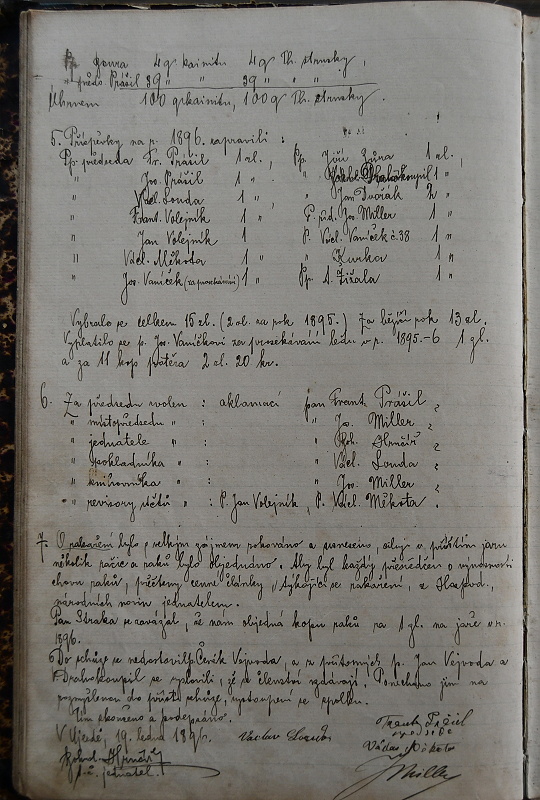 Pp. Joura 4 q kainitu 4 q Th. strusky,
" předs. Prášil 39 " " 39 " " "
Úhrnem 100 q kainitu, 100 q Th. strusky.
5. Příspěvky na r. 1896. zapravili :
Pp. předseda Fr. Prášil 1 zl., Pp. Jiří Jůna 1 zl.,
" Jos. Prášil 1 " " Drahokoupil 1 "
" Václ. Louda 1 " , " Jan Dvořák 2 "
" Frant. Volejník 1 " Jos. Miller 1 "
" Jan Volejník 1 P. Václ. Vaníček č. 38 1 "
" Václ. Měkota 1 " " Kurka 1 "
" Jos. Vaníček (za prosekávání) 1 " Pp. A. Žižala 1 "
Vybralo se celkem 15 zl. (2 zl. na rok 1895.) Za běžící rok 13 zl.
Vyplatilo se p. Jos. Vaníčkovi za prosekávání ledu v r. 1895-6 1 zl.
a za 11 kop potěra 2 zl. 20 kr.
6. Za předsedu zvolen : aklamací pan Frant. Prášil
" místopředsedu " : " Jos. Miller
" jednatele " : " Boh.
" pokladníka " : " Václ. Louda
" knihovníka " : " Jos. Miller
" revisory účtů " : P. Jan Volejník, P. Václ. Měkota.
7. O rakaření bylo s velkým zájmem rokováno a usneseno, aby v příštím jaru
několik račic a raků bylo objednáno. Aby byl každý přesvědčen o výnosnosti
chovu raků, přečteny cenné články, týkající se rakaření, z Hospod.,
národních novin jednatelem.
Pan Straka se zavázal, že nám objedná kopu raků za 1 zl. na jaře v r.
1896.
Do schůze se nedostavil p. Čeněk Vojvoda, a z přítomných p. Jan Vejvoda a
Drahokoupil se vyslovili, že se členství vzdávají. Ponecháno jim na
rozmyšlenou do příští schůze, vystoupení ze spolku.
Tím skončeno a podepsáno.
V Újezdě, 19. ledna 1896.
Frant. Prášil
předseda
Václav Louda
Václav Měkota
t. č. jednatel.
J. Miller